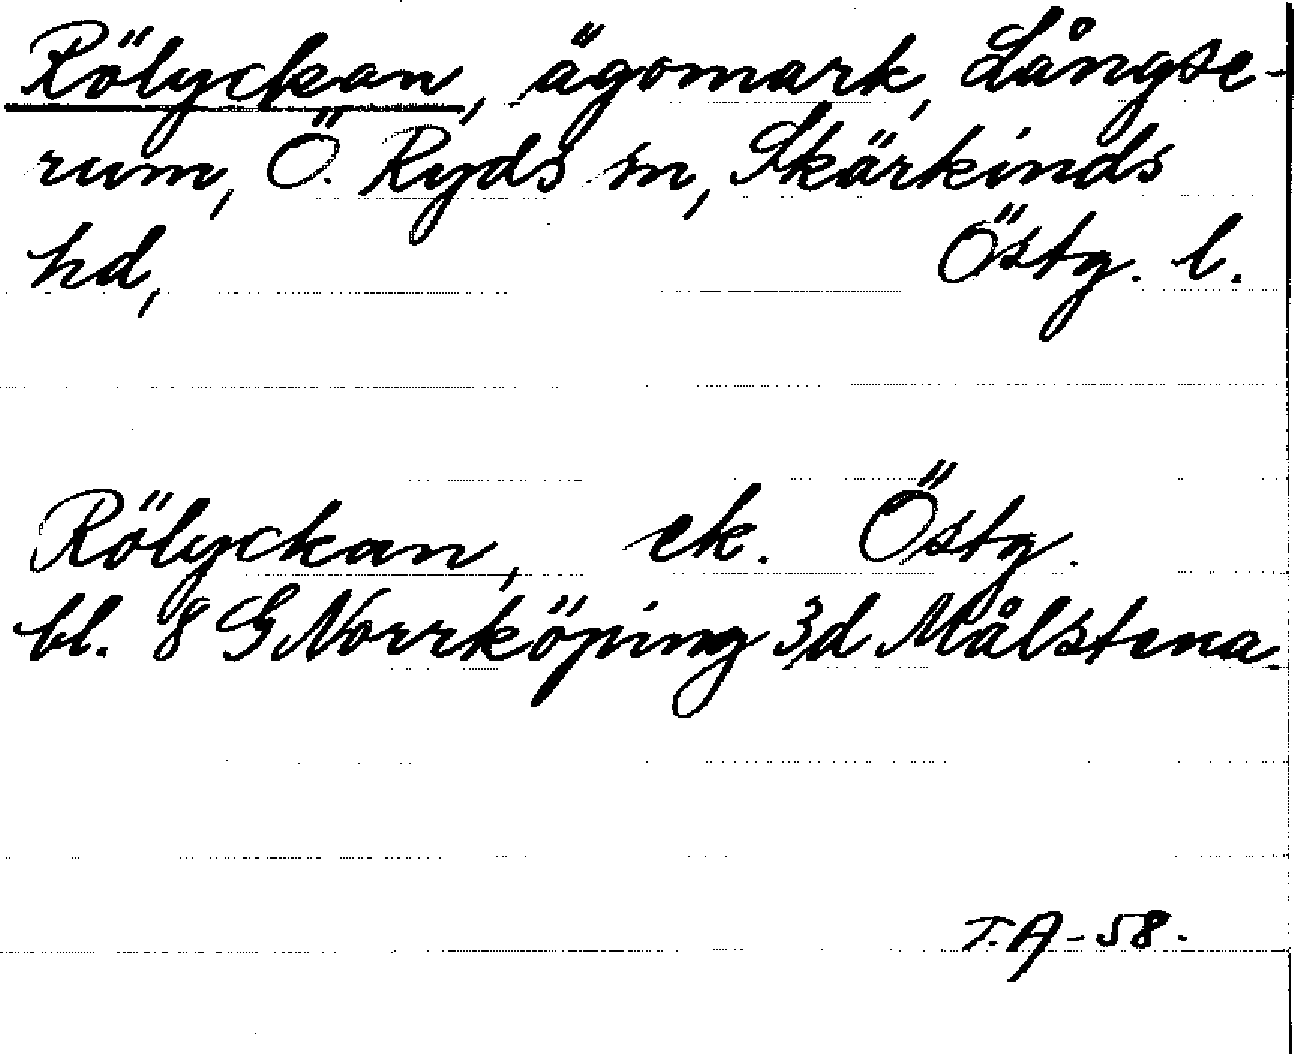 Rölyckan, ägomark, Långse-
rum, Ö. Ryds sn, Skärkinds
hd, Östg. l.
Rölyckan, ek. Östg.
bl. 8 G Norrköping 3d Målstena.
T.A-58.